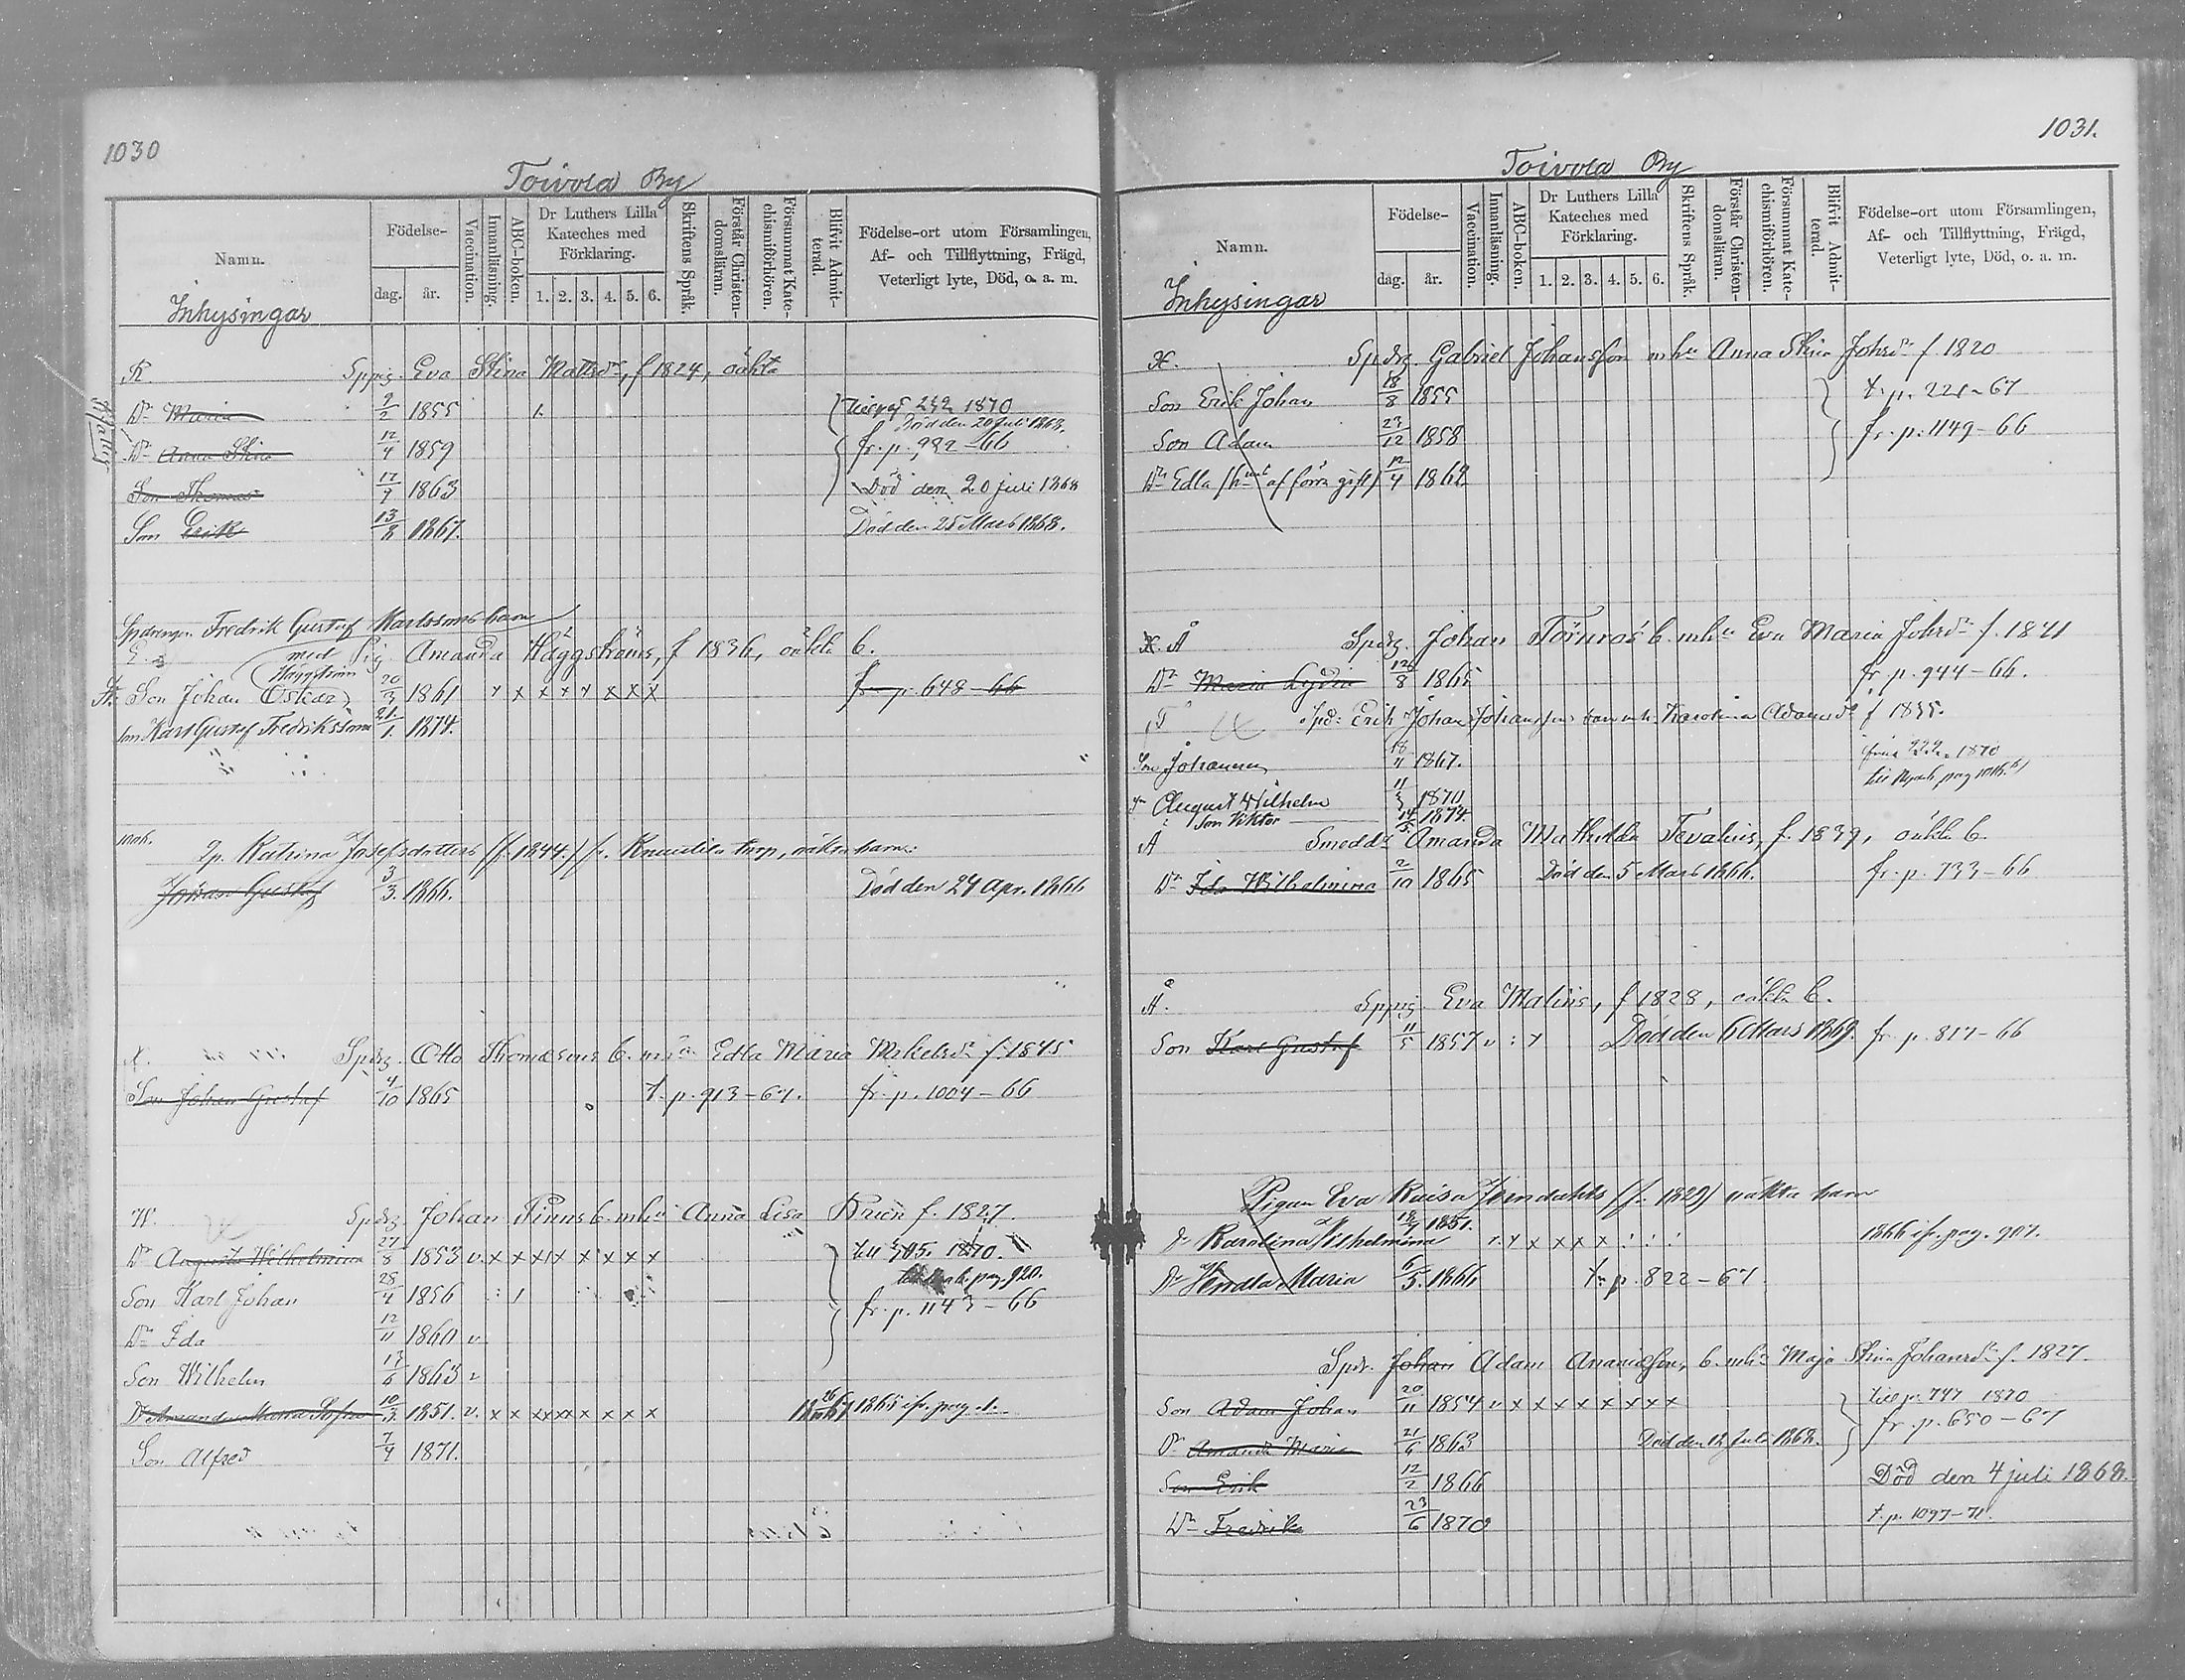 1030
Toivola By
Namn.
Inhysingar
Födelse-
dag.
år.
Vaccination.
Innanläsning.
ABC-boken.
Dr Luthers Lilla Kateches med Förklaring.
1. 2. 3. 4. 5. 6.
Skriftens Språk.
Förstår Christendomsläran.
Försummat Katechismiförhören.
Blifvit Admitterad.
Födelse-ort utom Församlingen,
Af- och Tillflyttning, Frägd,
Veterligt lyte, Död, o. a. m.
K. Sppig. Eva Stina Mattsdr, f 1824, oäkta
Dr Maria 9/2 1855 242 1870
Död den 20 Juli 1868.
Dr Anna Stina 12/4 1859 fr. p. 982-66
Son Thomas 17/9 1863 Död den 20 juli 1868
Son Erik 13/8 1867. Död den 25 Mars 1868.
Spdrengen Fredrik Gustaf Karlssons barn
med Pig. Amanda Häggströms, f 1836, oäkta b.
Häggström
Son Johan Oskar 20/3 1861 x x x x x x x x fr. p. 648-66
Son Karl Gustaf Fredriksson 21/1. 1874.
Ip. Katrina Josefsdotters (f. 1844.) fr. torp, oäkta barn:
Johan Gustaf 3/3. 1866. Död den 24 Apr. 1866
Spdrg. Otto Thomassons b. m. h. Edla Maria Mikelsdr f. 1845
Son Johan Gustaf 4/10 1865 t. p. 913-67. fr. p. 1004-66
W. Spdrg. Johan Finns b. m hu Anna Lisa Brien f. 1827.
Dr Augusta Wilhelmina 27/8 1853 v. x x x x x x x x till 505. 1870.
pag. 920.
Son Karl Johan 28/4 1856 fr. p. 1143-66
Dr Ida 12/11 1860 v
Son Wilhelm 17/6 1863 v
Dr Amanda Maria Sofia 10/3 1851. v. x x x x x x x x x 1865 ifr. pag. 1.
Son Alfred 7/9 1871.
1031.
Toivola By
Namn.
Inhysingar
Födelse-
dag.
år.
Vaccination.
Innanläsning.
ABC-boken.
Dr Luthers Lilla Kateches med Förklaring.
1. 2. 3. 4. 5. 6.
Skriftens Språk.
Förstår Christendomsläran.
Försummat Katechismiförhören.
Blifvit Admitterad.
Födelse-ort utom Församlingen,
Af- och Tillflyttning, Frägd,
Veterligt lyte, Död, o. a. m.
Spdrg. Gabriel Johansson m hu Anna Stina Johsdr f 1820
Son Erik Johan 18/8 1855 t. p. 221-67
Son Adam 23/12 1858 fr. p. 1149-66
Dr Edla (hust af förra gift) 12/4 1862
Å Spdrg. Johan Törnroos b. m hu Eva Maria Johsdr f. 1841
Dr Maria Lydia 12/8 1865 fr. p. 944-66.
Spd: Erik Johan Johansson barn m h. Karolina Adamsdr f 1835.
Son Johannes 18/11 1867. från 222. 1870
August Wilhelm 1870
Son Viktor 14/5. 1874.
A Smeddr Amanda Mathilda Tevalius, f. 1839, oäkta b.
Dr Ida Wilhelmina 2/10 1865 Död den 5 Mars 1866. fr. p. 733-66
Å. Sppig. Eva Malins, f 1828, oäkta b.
Son Karl Gustaf 11/5 1857 v : x Död den 6 Mars 1869. fr. p. 817-66
Pigan Eva Kaisa (f. 1829) oäkta barn
Dr Karolina Wilhelmina 1851. v. x x x x x : : : 1866 ifr. pag. 907.
Dr Hendla Maria 6/5. 1866 t. p. 822-67
Spdr. Johan Adam Ananiasson, b. mhu Maja Stina Johansdr f. 1827.
Son Adam Johan 20/11 1854 v x x x x x x x x till p. 747 1870
fr. p. 650-67
Dr Amanda Maria 21/6 1863 Död den 12 Juli 1868.
Son Erik 12/2 1866 Död den 4 juli 1868.
Dr Fredrika 23/6 1870 t. p. 1097-71.